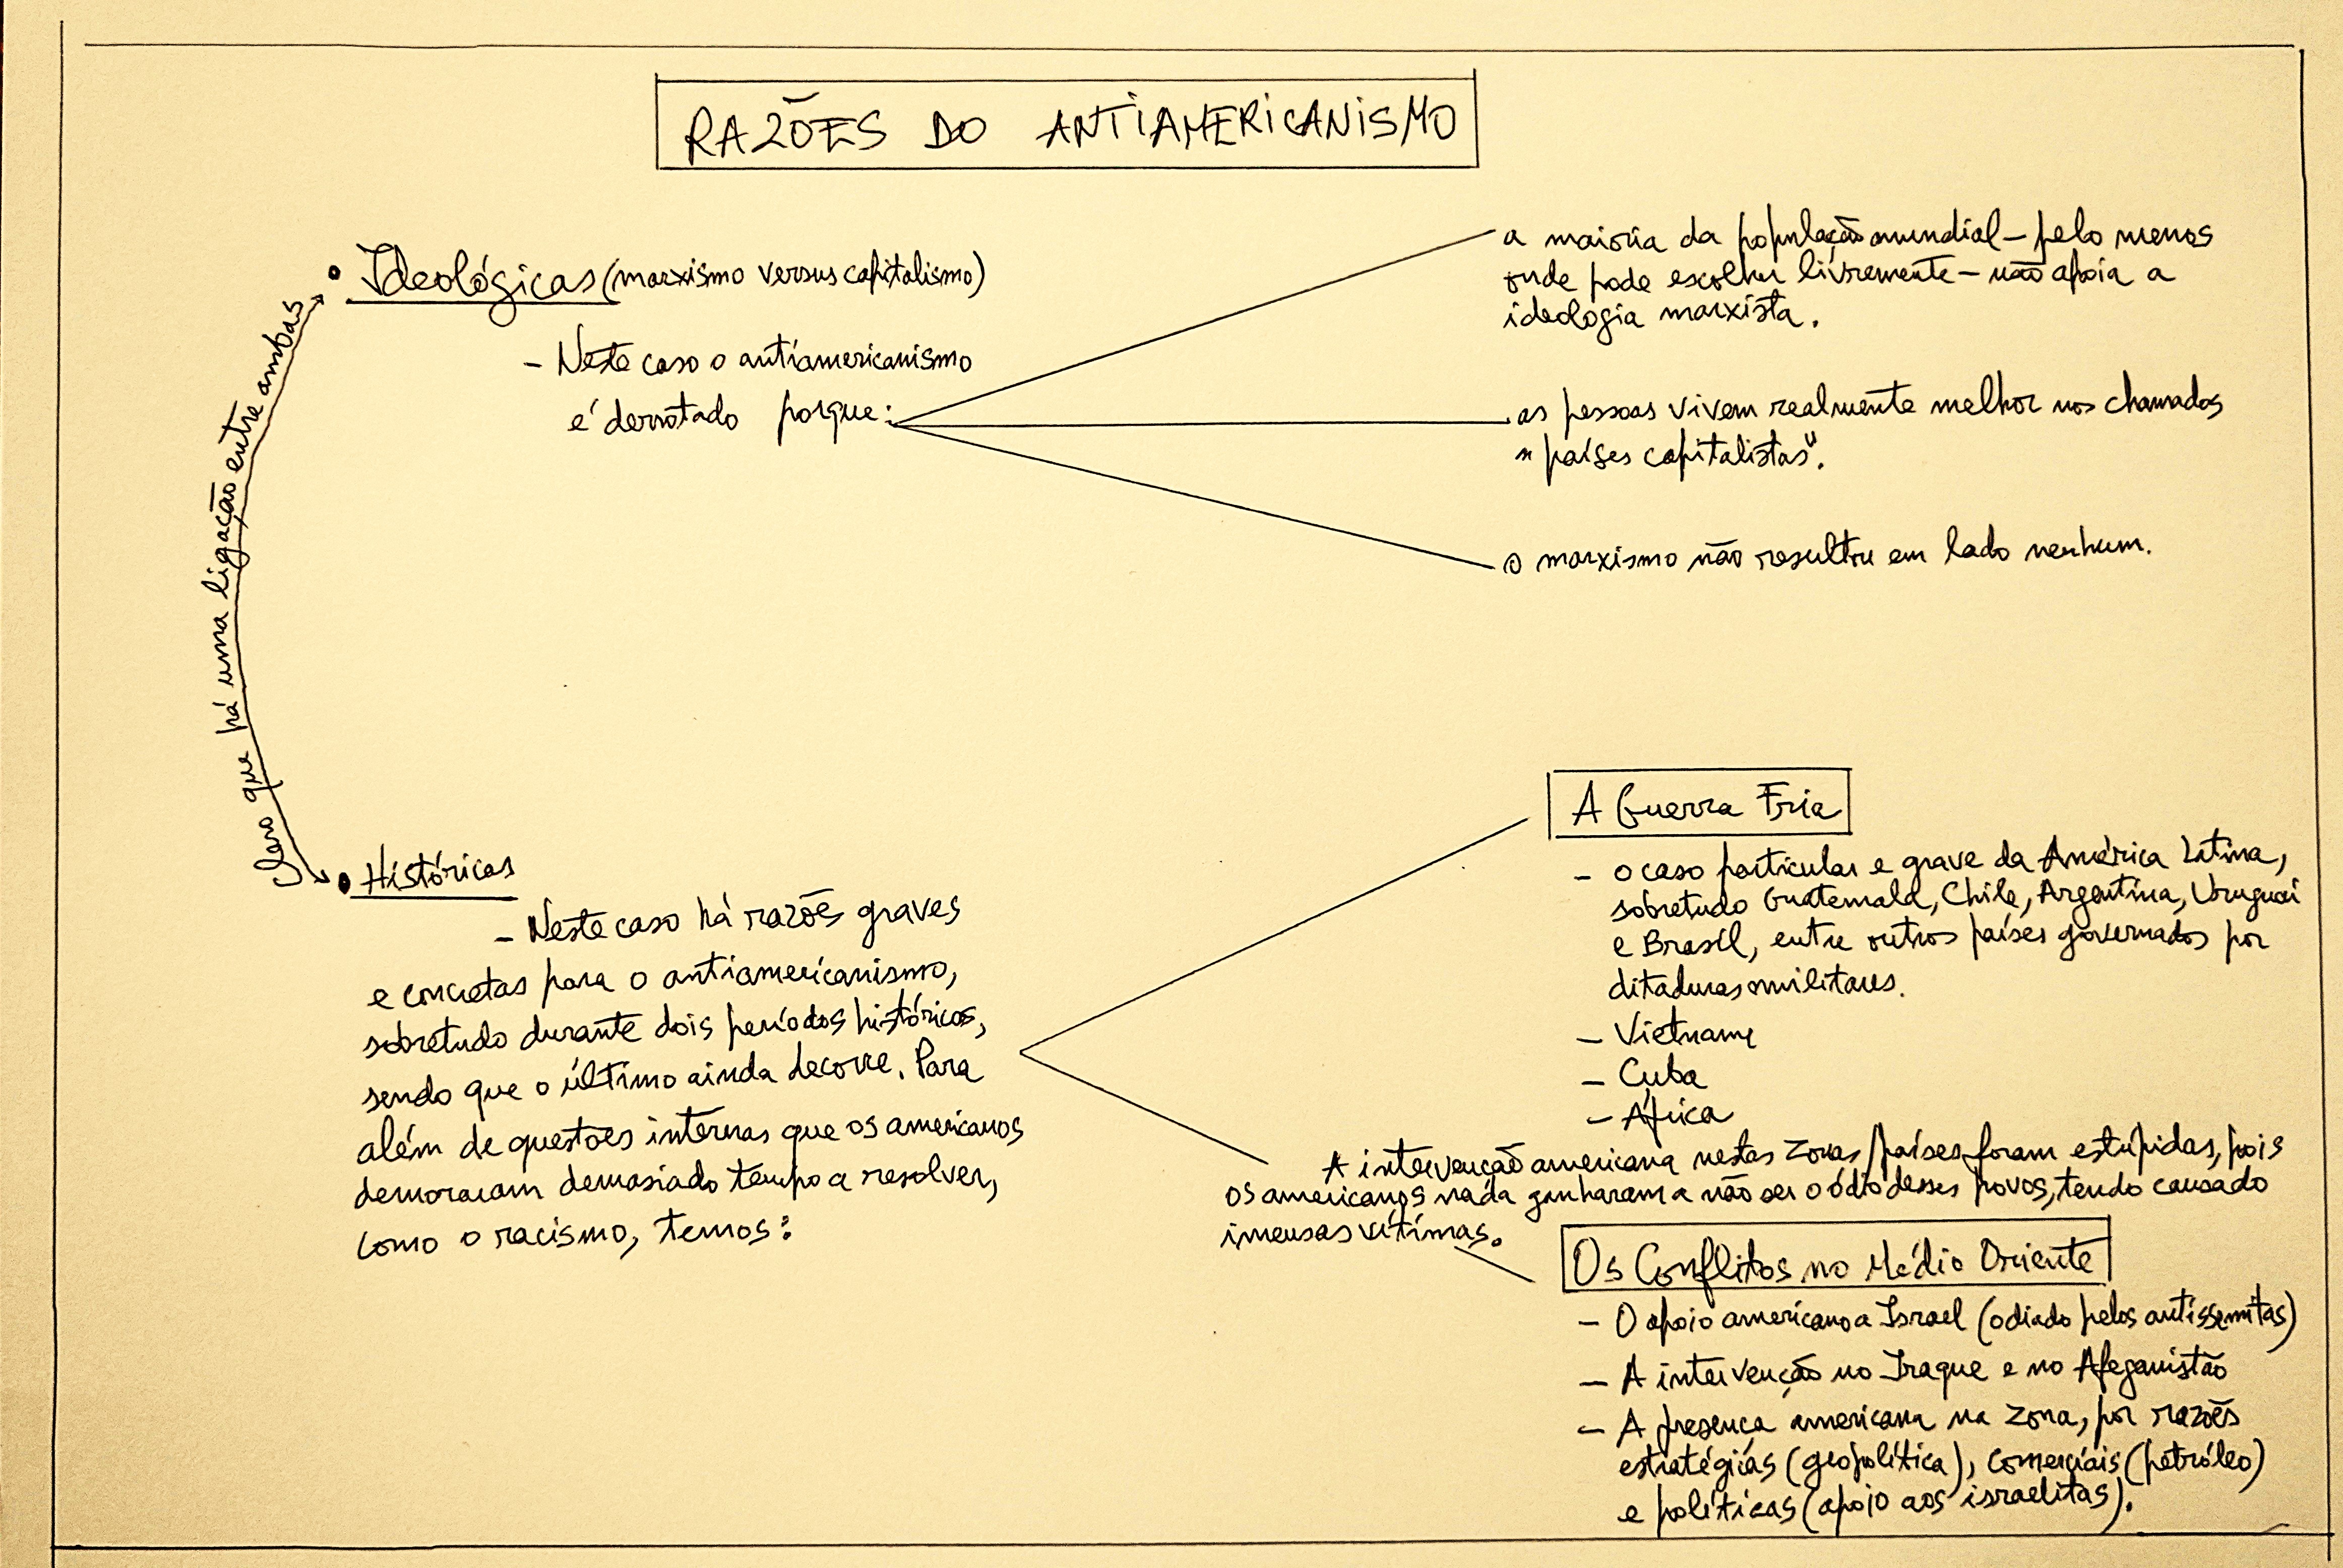 RAZÕES DO ANTIAMERICANISMO
• Ideológicas (marxismo versus capitalismo)
- Neste caso o antiamericanismo
é derrotado porque:
a maioria da população mundial - pelo menos
onde pode escolher livremente - não apoia a
ideologia marxista.
as pessoas vivem realmente melhor nos chamados
"países capitalistas".
o marxismo não resultou em lado nenhum.
que há uma ligação entre ambas
• Históricas
- Neste caso há razões graves
e concretas para o antiamericanismo,
sobretudo durante dois períodos históricos,
sendo que o último ainda decorre. Para
além de questões internas que os americanos
demoraram demasiado tempo a resolver,
como o racismo, temos:
A Guerra Fria
- o caso particular e grave da América Latina,
sobretudo Guatemala, Chile, Argentina, Uruguai
e Brasil, entre outros países governados por
ditaduras militares.
- Vietname
- Cuba
- África
A intervenção americana nestas zonas/países foram estúpidas, pois
os americanos nada ganharam a não ser o ódio desses povos, tendo causado
imensas vítimas.
Os Conflitos no Médio Oriente
- O apoio americano a Israel (odiado pelos antissemitas)
- A intervenção no Iraque e no Afeganistão
- A presença americana na zona, por razões
estratégicas (geopolítica), comerciais (petróleo)
e políticas (apoio aos israelitas).